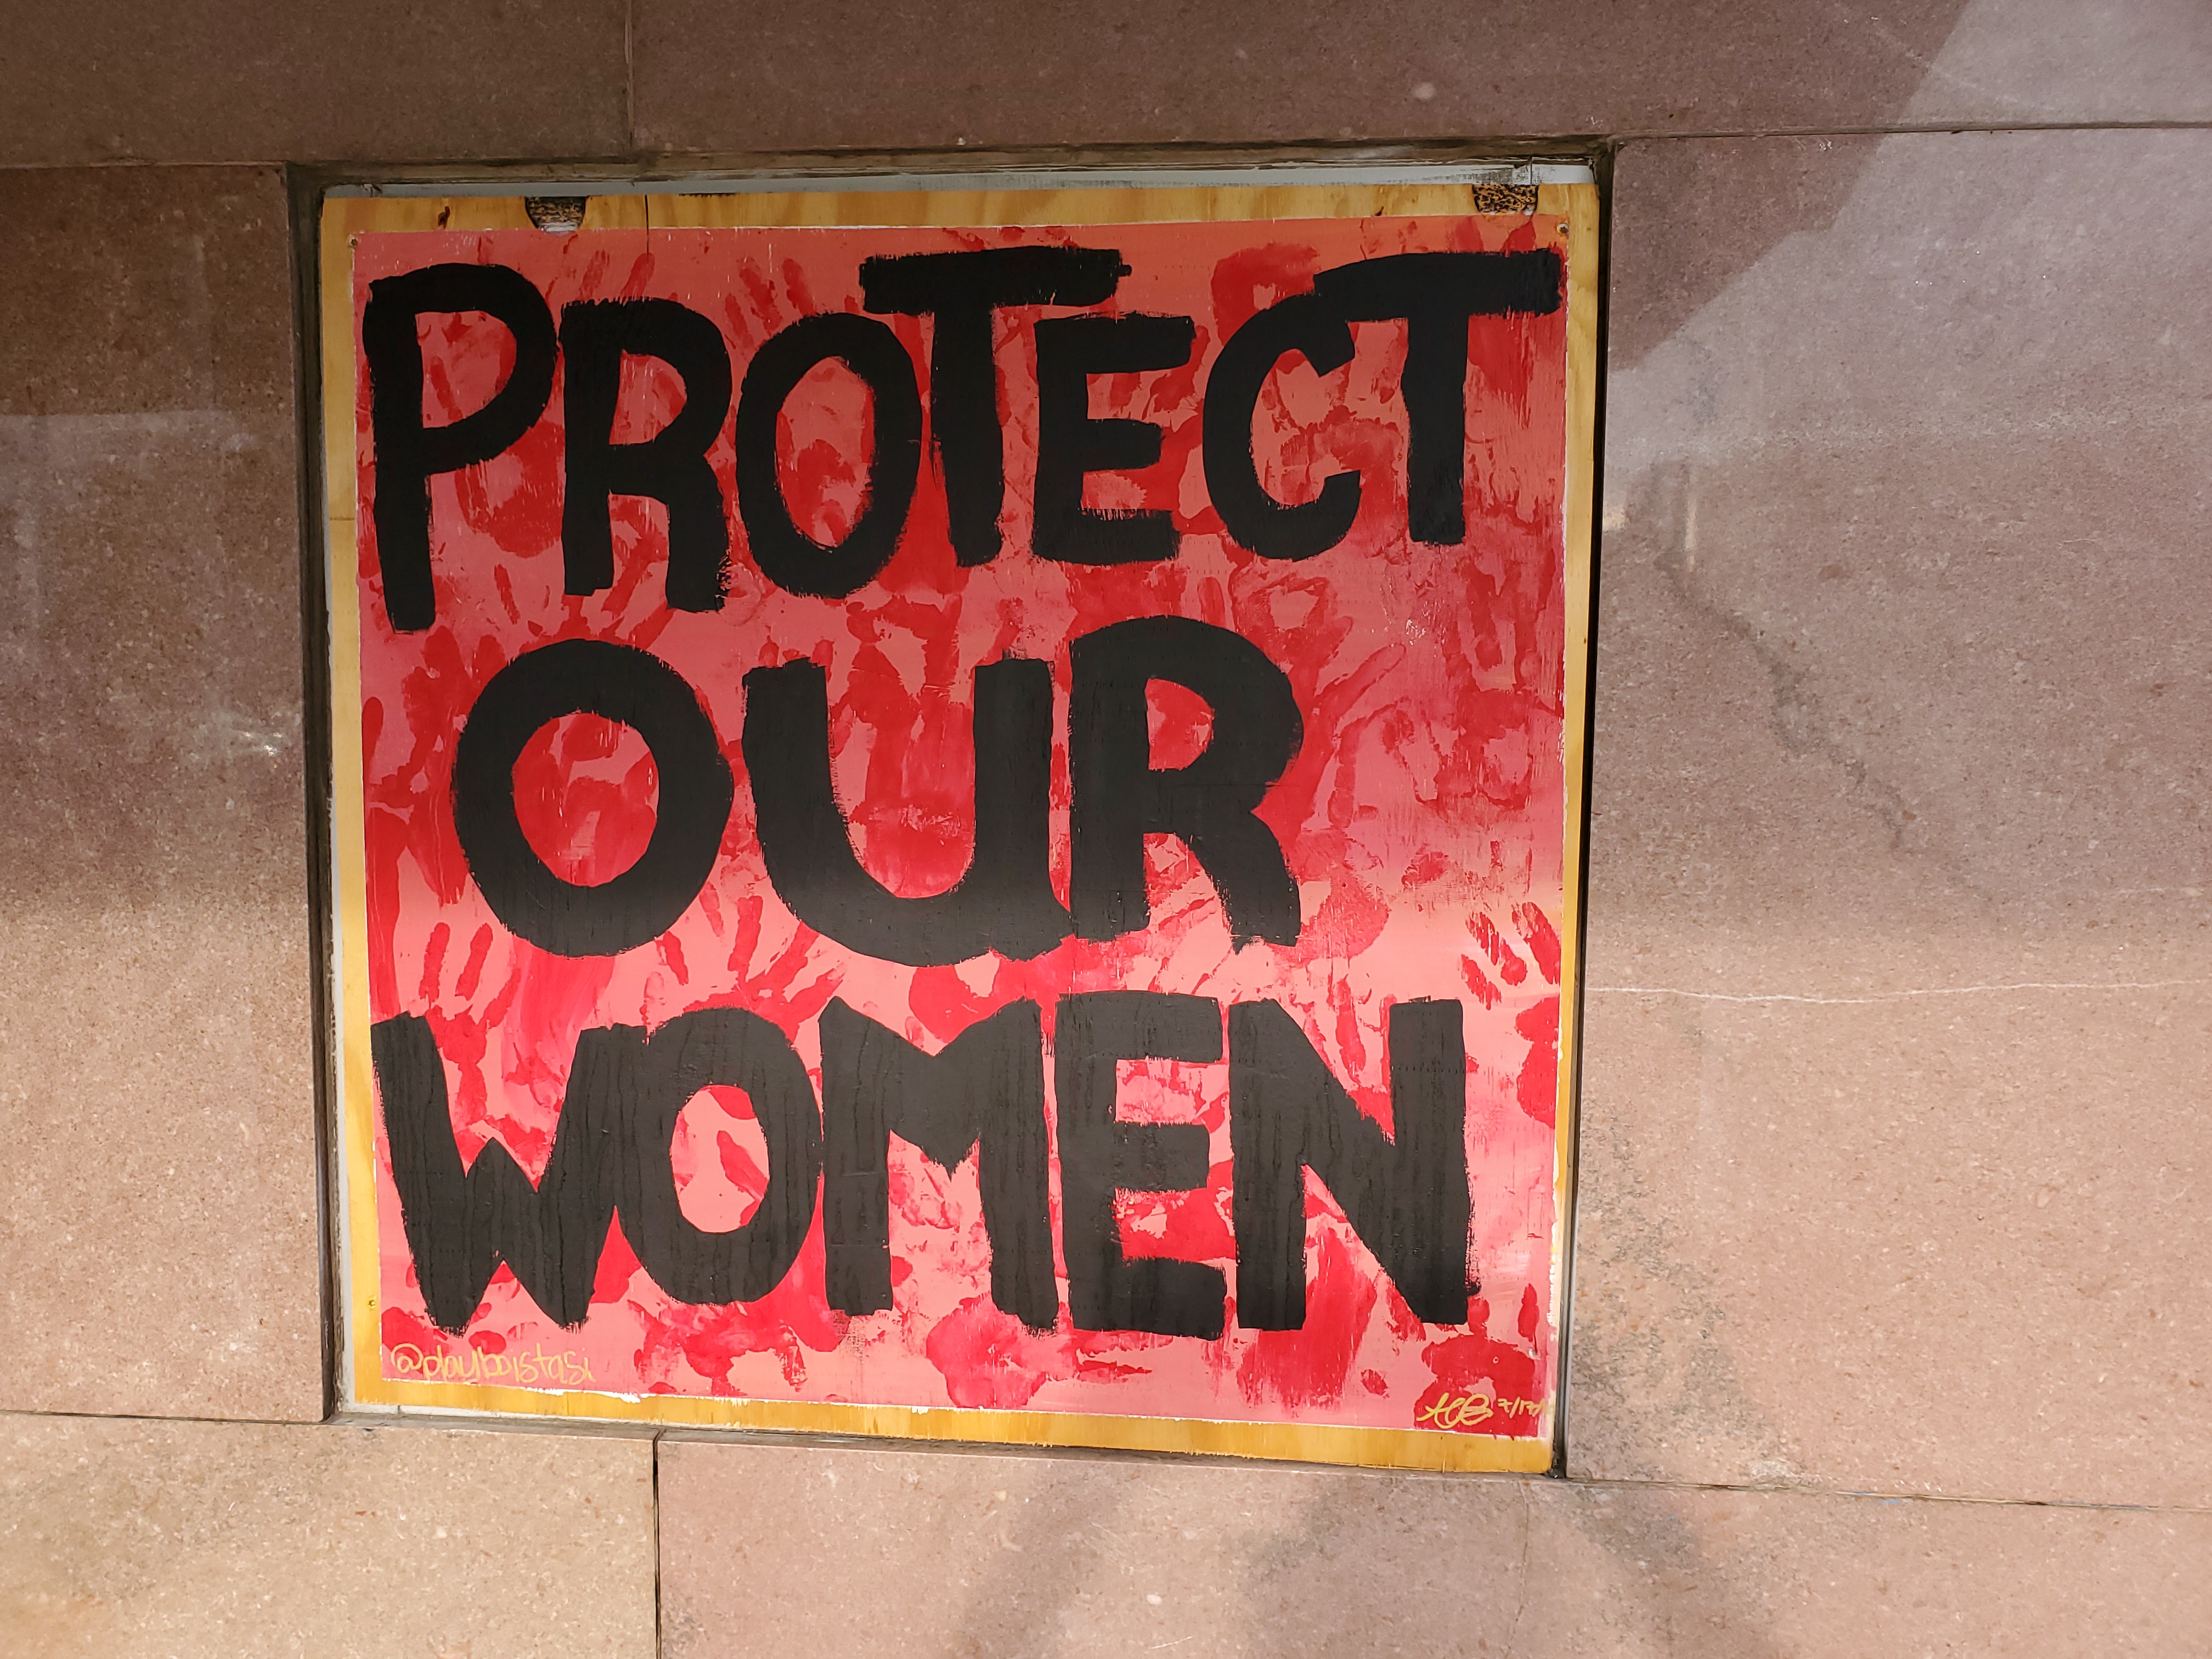 PROTECT
OUR
WOMEN
@playboistasi